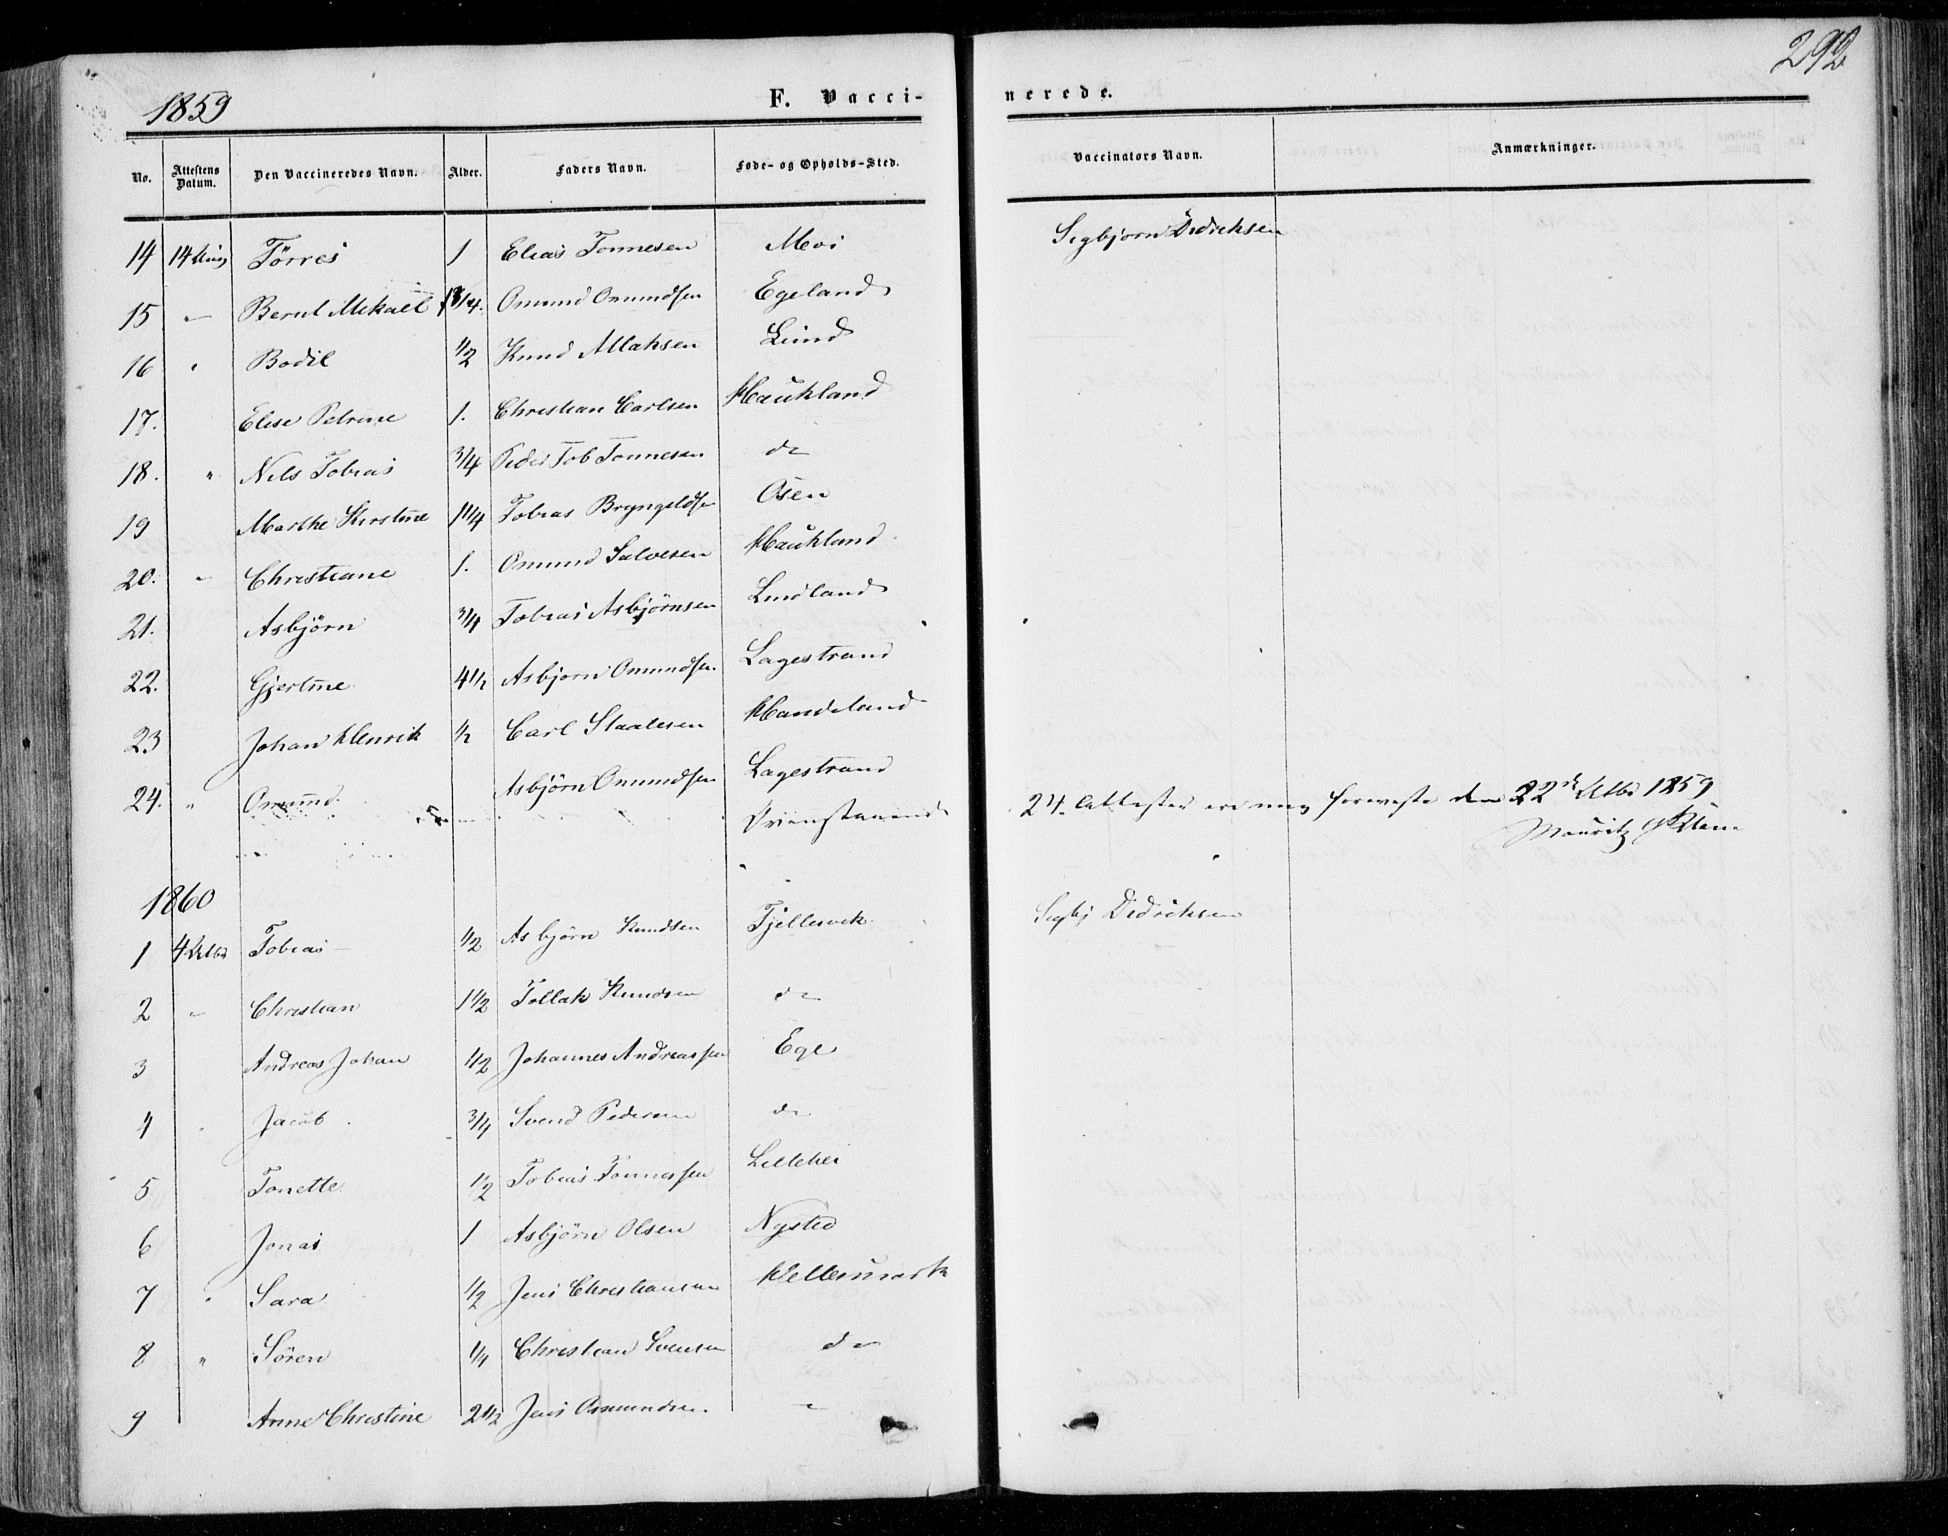 292
1859 F. Vacci- nerede.
No. Attestens Datum. Den Vaccineredes Navn. Alder. Faders Navn. Føde- og Opholds-Sted. Vaccinators Navn. Anmærkninger.
14 14 Törres 1 Elias Tonnesen Moi Sigbjorn Didriksen
15 " Bernt Mikael Omund Omundsen Egeland
16 " Bodil 1/2 Knud Atlaksen Lund
17. Elise Petrine 1. Christian Carlsen Haukland
18. " Nils Tobias 3/4 Peder Tob Tonnesen do
19 Marthe Kirstine 1 1/4 Tobias Bryngeldsen Osen
20. " Christiane 1. Omund Salvesen Haukland
21. Asbjörn 3/4 Tobias Asbjörnsen Lindland
22. Gjertine 4 1/2 Asbjorn Omundsen Lagestrand
23 Johan Henrik 1/2 Carl Staalesen Handeland
24. " Omund Asbjörn Omundsen Lagestrand
24 Attester ere mig foreviste den 22de Octbr 1859
Mauritz
1860
1 4 Octbr Tobias 1/2 Asbjörn Knudsen Fjellesvik Sigbj Didriksen
2 " Christian 1 1/2 Tollak Knudsen do
3 Andreas Johan 1/2 Johannes Andreassen Ege
4 Jacob 3/4 Svend Pedersen do
5 Tonette 1/2 Tobias Tonnessen Lillehei
6 Jonas 1 Asbjörn Olsen Nysted
7 " Sara 1/2 Jens Christiansen Hellesmark
8 " Sören 1/4 Christian Svensen do
9 Anne Christine 2 1/2 Jens Osmundsen "